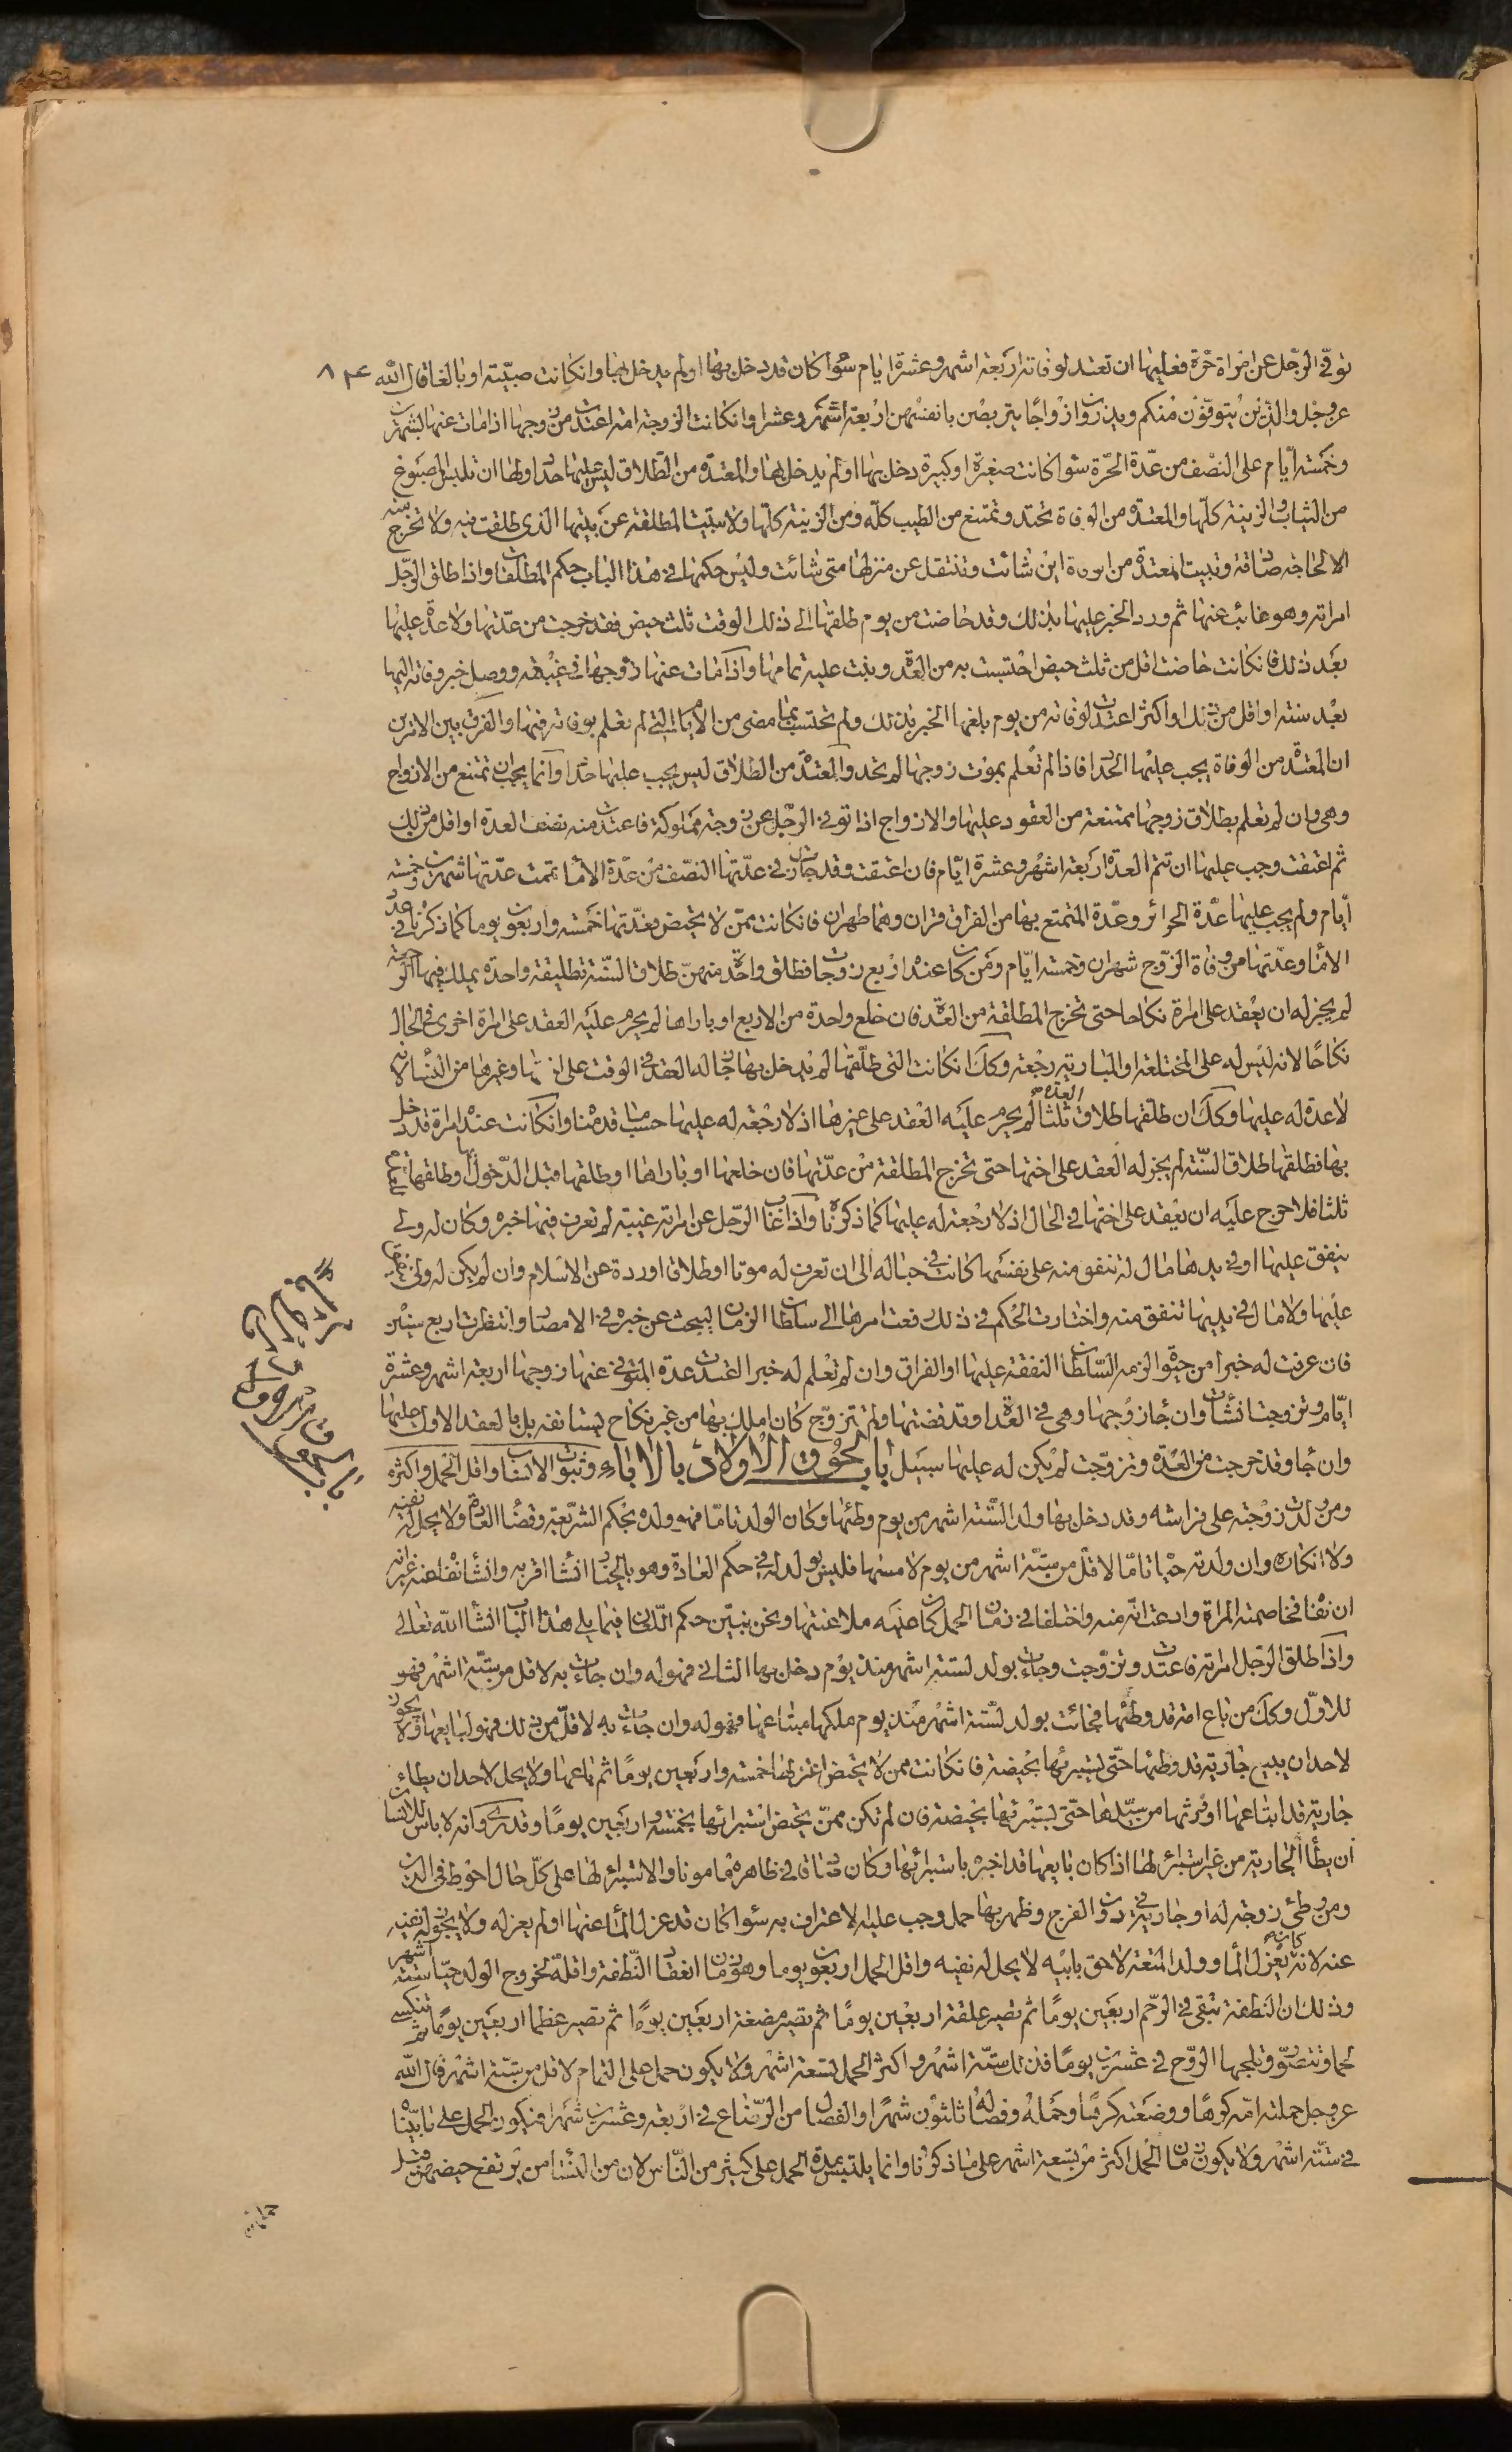 توفي الرجل عن امراة حرة فعليها ان تعتد لوفاته اربعة اشهر وعشرة ايام سوا كان قد دخل بها او لم يدخل بها وان كانت صبية او بالغا قال الله
عز وجل والذين يتوفون منكم ويذرون ازواجا يتربصن بانفسهن اربعة اشهر وعشرا وان كانت الزوجة امة اعتدت من زوجها اذا مات عنها بشهرين
وخمسة ايام على النصف من عدة الحرة سوا كانت صغيرة او كبيرة دخل بها او لم يدخل بها والمعتدة من الطلاق ليس عليها حداد ولها ان تلبس المصبوغ
من الثياب والزينة كلها والمعتدة من الوفاة تحتد وتمتنع من الطيب كله ومن الزينة كلها ولا تبيت المطلقة عن بيتها الذي طلقت فيه ولا تخرج منه
الا لحاجة صادقة وتبيت المعتدة من الوفاة اين شائت وتنتقل عن منزلها متى شائت وليس حكمها في هذا الباب حكم المطلقات واذا طلق الرجل
امراته وهو غائب عنها ثم ورد الخبر عليها بذلك وقد حاضت من يوم طلقها الى ذلك الوقت ثلث حيض فقد خرجت من عدتها ولا عدة عليها
بعد ذلك فان كانت حاضت اقل من ثلث حيض احتسبت به من العدة وبنت عليه تمامها واذا مات عنها زوجها في غيبته ووصل خبر وفاته اليها
بعد سنة او اقل من ذلك او اكثر اعتدت لوفاته من يوم بلغها الخبر بذلك ولم تحتسب بما مضى من الايام التي لم تعلم بوفاته فيها والفرق بين الامرين
ان المعتدة من الوفاة يجب عليها الحداد فاذا لم تعلم بموت زوجها لم تحد والمعتدة من الطلاق ليس يجب عليها حداد وانما يجب ان تمتنع من الازواج
وهي وان لم تعلم بطلاق زوجها ممتنعة من العقود عليها والازواج اذا توفي الرجل عن زوجة مملوكة فاعتدت منه نصف العدة او اقل من ذلك
ثم اعتقت وجب عليها ان تتم العدة اربعة اشهر وعشرة ايام فان اعتقت وقد جازت في عدتها النصف من عدة الاماء تمت عدتها شهرين وخمسة
ايام ولم يجب عليها عدة الحرائر وعدة المتمتع بها من الفراق قران وهما طهران فان كانت ممن لا تحيض فعدتها خمسة واربعون يوما كما ذكرناه في عدد
الاماء وعدتها من وفاة الزوج شهران وخمسة ايام ومن كان عنده اربع زوجات فطلق واحدة منهن طلاق السنة تطليقة واحدة يملك فيها الرجعة
لم يجز له ان يعقد على امراة نكاحا حتى تخرج المطلقة من العدة فان خلع واحدة من الاربع او باراها لم يحرم عليه العقد على امراة اخرى في الحال
نكاحا لانه ليس له على المختلعة والمبارية رجعة وكك ان كانت التي طلقها لم يدخل بها جاز له العقد في الوقت على اختها وغيرها من النساء لانه
لا عدة له عليها وكك ان طلقها طلاق العدة ثلثا لم يحرم عليه العقد على غيرها اذ لا رجعة له عليها حسب ما قدمناه وان كانت عنده امراة قد دخل
بها فطلقها طلاق السنة لم يجز له العقد على اختها حتى تخرج المطلقة من عدتها فان خلعها او باراها او طلقها قبل الدخول بها وطلقها
ثلثا فلا حرج عليه ان يعقد على اختها في الحال اذ لا رجعة له عليها كما ذكرناه واذا غاب الرجل عن امراته غيبة لم تعرف فيها خبره وكان له ولي
ينفق عليها او في يدها مال له تنفق منه على نفسها كانت في حباله الى ان تعرف له موتا او طلاقا او ردة عن الاسلام وان لم يكن له ولي ينفق
عليها ولا مال في يديها تنفق منه واختارت الحكم في ذلك رفعت امرها الى سلطان الزمان ليبحث عن خبره في الامصار وانتظرت اربع سنين
فان عرفت له خبرا من حيوة الزمه السلطان النفقة عليها او الفراق وان لم تعلم له خبرا اعتدت عدة المتوفى عنها زوجها اربعة اشهر وعشرة
ايام وتزوجت ان شائت وان جاء زوجها وهي في العدة او قد قضتها ولم تتزوج كان املك بها من غير نكاح يستانفه بل بالعقد الاول عليها
وان جاء وقد خرجت من العدة وتزوجت لم يكن له عليها سبيل باب لحوق الاولاد بالاباء وثبوت الانساب واقل الحمل واكثره
ومن ولدت زوجته على فراشه وقد دخل بها ولدا لستة اشهر من يوم وطئها وكان الولد تاما فهو ولده بحكم الشريعة وقضاء العادة ولا يحل له نفيه
ولا انكاره وان ولدته حيا تاما لاقل من ستة اشهر من يوم لامسها فليس بولد له في حكم العادة وهو بالخيار ان شاء اقر به وان شاء نفاه عنه غير انه
ان نفاه فخاصمته المراة وادعت انه منه واختلفا في زمان الحمل كان عليه ملاعنتها ونحن نبين حكم اللعان فيما يلي هذا الباب انشاء الله تعالى
واذا طلق الرجل امراته فاعتدت وتزوجت وجائت بولد لستة اشهر منذ يوم دخل بها الثاني فهو له وان جائت به لاقل من ستة اشهر فهو
للاول وكك من باع امة قد وطئها فجائت بولد لستة اشهر منذ يوم ملكها مبتاعها فهو له وان جائت به لاقل من ذلك فهو لبايعها ولا يجوز
لاحد ان يبيع جارية قد وطئها حتى يستبرئها بحيضة فان كانت ممن لا تحيض اعتزلها خمسة واربعين يوما ثم باعها ولا يحل لاحد ان يطاء
جارية قد ابتاعها او ورثها من سيدها حتى يستبرئها بحيضة فان لم تكن ممن تحيض استبرائها بخمسة واربعين يوما وقد روي انه لا باس للانسان
ان يطأ الجارية من غير استبراء لها اذا كان بايعها قد اخبره باستبرائها وكان صادقا في ظاهره مامونا والاستبراء لها على كل حال احوط في الدين
ومن وطئ زوجة له او جارية في دون الفرج وظهر بها حمل وجب عليه الاعتراف به سواء كان قد عزل الماء عنها او لم يعزله ولا يجوز له نفيه
عنه لانه كان يعزل الماء وولد المتعة لاحق بابيه لا يحل له نفيه واقل الحمل اربعون يوما وهو زمان انعقاد النطفة واقله لخروج الولد حيا ستة اشهر
وذلك ان النطفة تبقى في الرحم اربعين يوما ثم تصير علقة اربعين يوما ثم تصير مضغة اربعين يوما ثم تصير عظما اربعين يوما ثم تنكسي
لحما وتتصور وتلجها الروح في عشرين يوما فذلك ستة اشهر واكثر الحمل لتسعة اشهر ولا يكون حمل على التمام لاقل من ستة اشهر قال الله
عز وجل حملته امه كرها ووضعته كرها وحمله وفصاله ثلثون شهرا والفصال من الرضاع في اربعة وعشرين شهرا فيكون الحمل على ما بيناه
في ستة اشهر ولا يكون زمان الحمل اكثر من تسعة اشهر على ما ذكرناه وانما يلتبس مدة الحمل على كثير من الناس لان من النساء من يرتفع حيضهن قبل